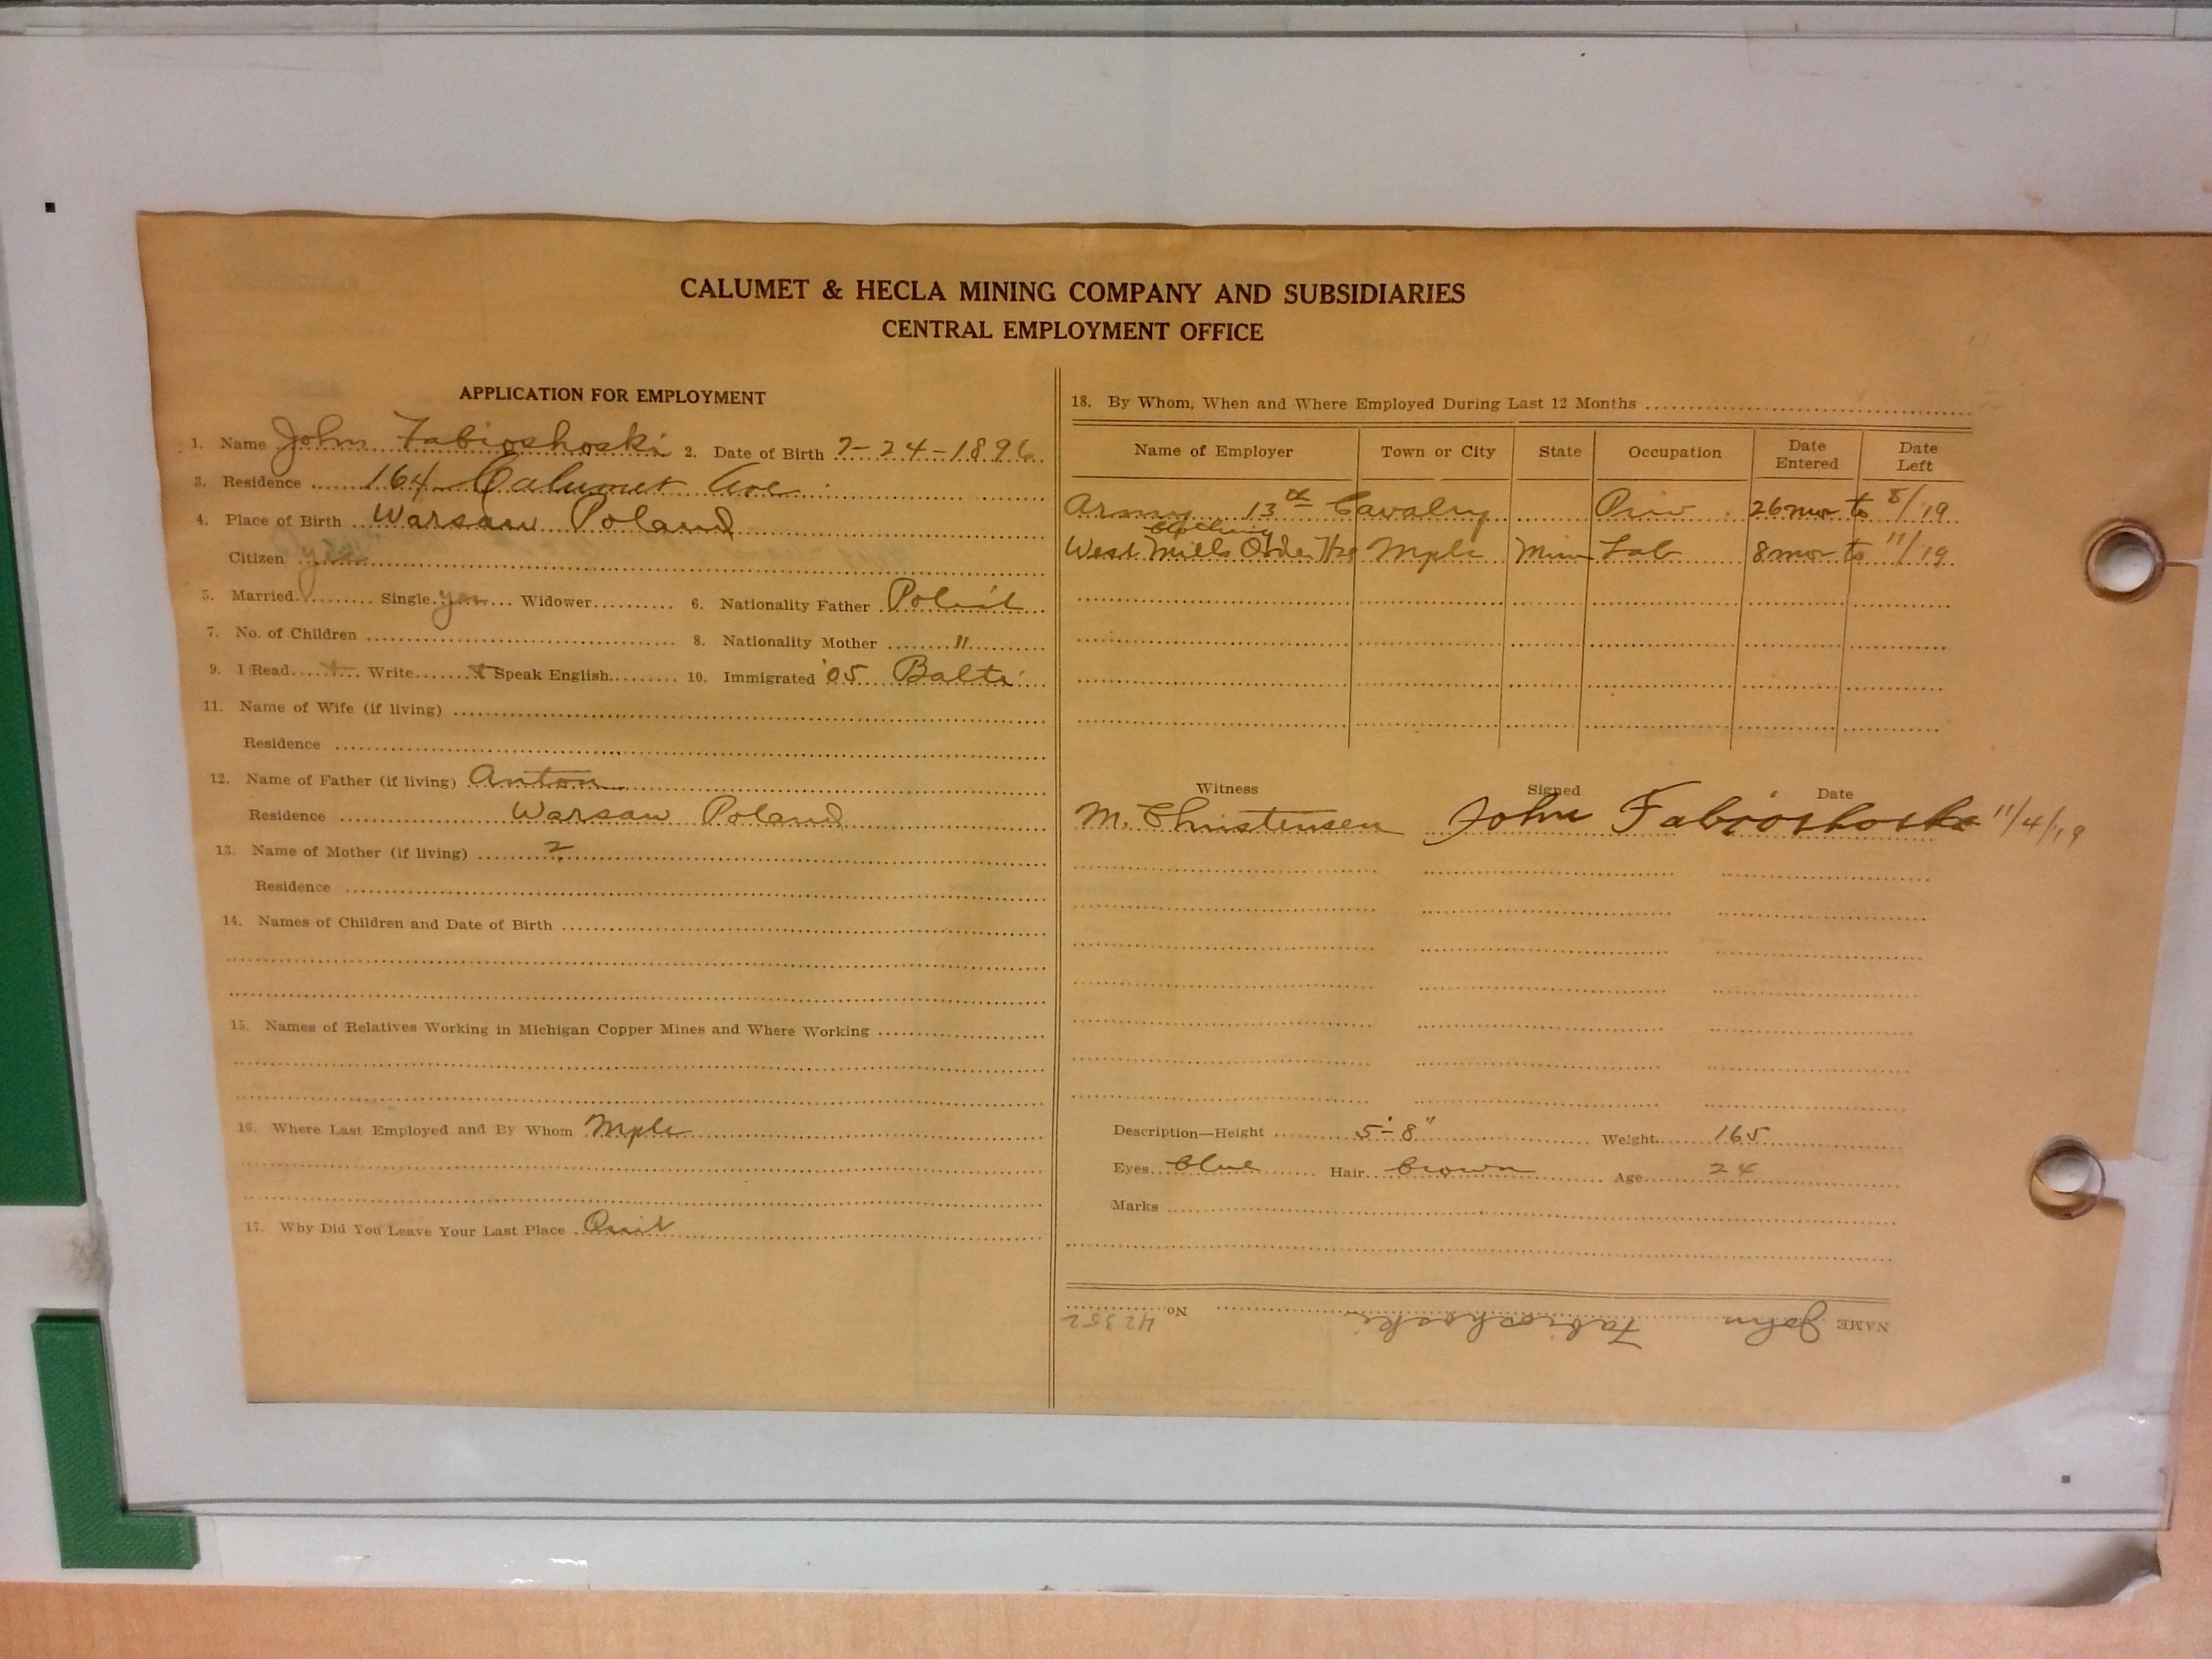 CALUMET & HECLA MINING COMPANY AND SUBSIDIARIES
CENTRAL EMPLOYMENT OFFICE
APPLICATION FOR EMPLOYMENT
1. Name John Fabioshoski 2. Date of Birth 7-24-1896
3. Residence 164 Calumet Ave
4. Place of Birth Warsaw Poland
Citizen yes
5. Married Single yes Widower 6. Nationality Father Polish
7. No. of Children 8. Nationality Mother "
9. I Read + Write + Speak English 10. Immigrated '05 Balto
11. Name of Wife (if living)
Residence
12. Name of Father (if living) Anton
Residence Warsaw Poland
13. Name of Mother (if living) ?
Residence
14. Names of Children and Date of Birth
15. Names of Relatives Working in Michigan Copper Mines and Where Working
16. Where Last Employed and By Whom Mpls
17. Why Did You Leave Your Last Place Quit
18. By Whom, When and Where Employed During Last 12 Months
Name of Employer Town or City State Occupation Date Entered Date Left
Army 13th Cavalry Priv 26 mos to 8/'19
West Mills Order Hse Mpls Minn Lab 8 mos to 11/'19
Witness Signed Date
M. Christensen John Fabioshoski 11/4/19
Description—Height 5'-8" Weight 165
Eyes blue Hair brown Age 24
Marks
NAME John Fabioshoski No. 42352